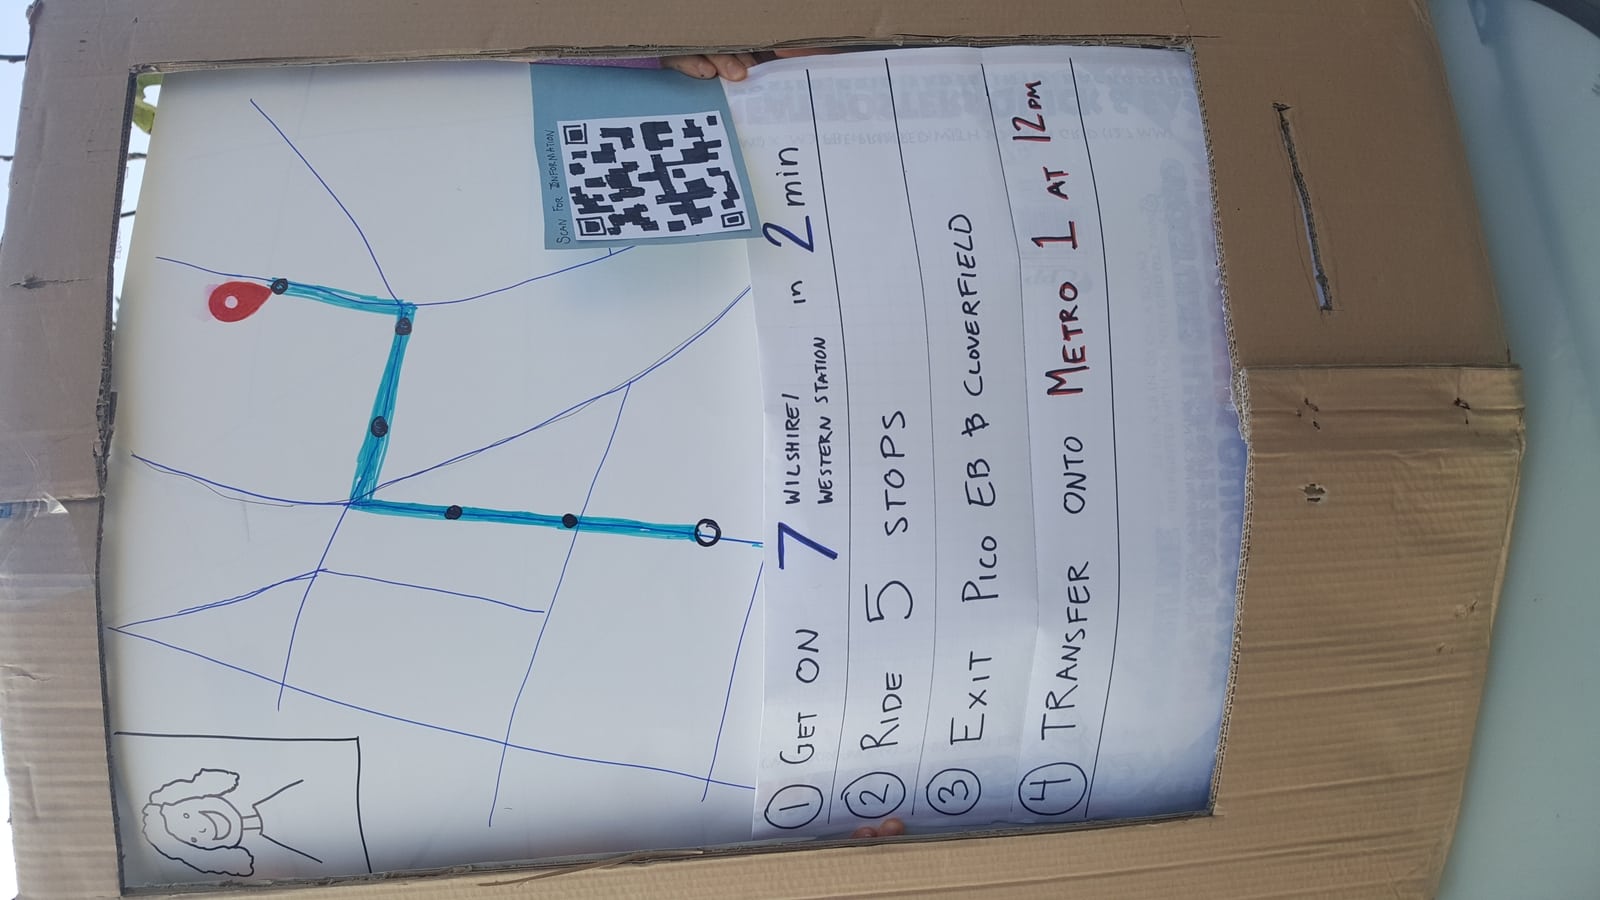 SCAN FOR INFORMATION
1 GET ON 7 WILSHIRE/
WESTERN STATION in 2 min
2 RIDE 5 STOPS
3 EXIT PICO EB & CLOVERFIELD
4 TRANSFER ONTO METRO 1 AT 12PM